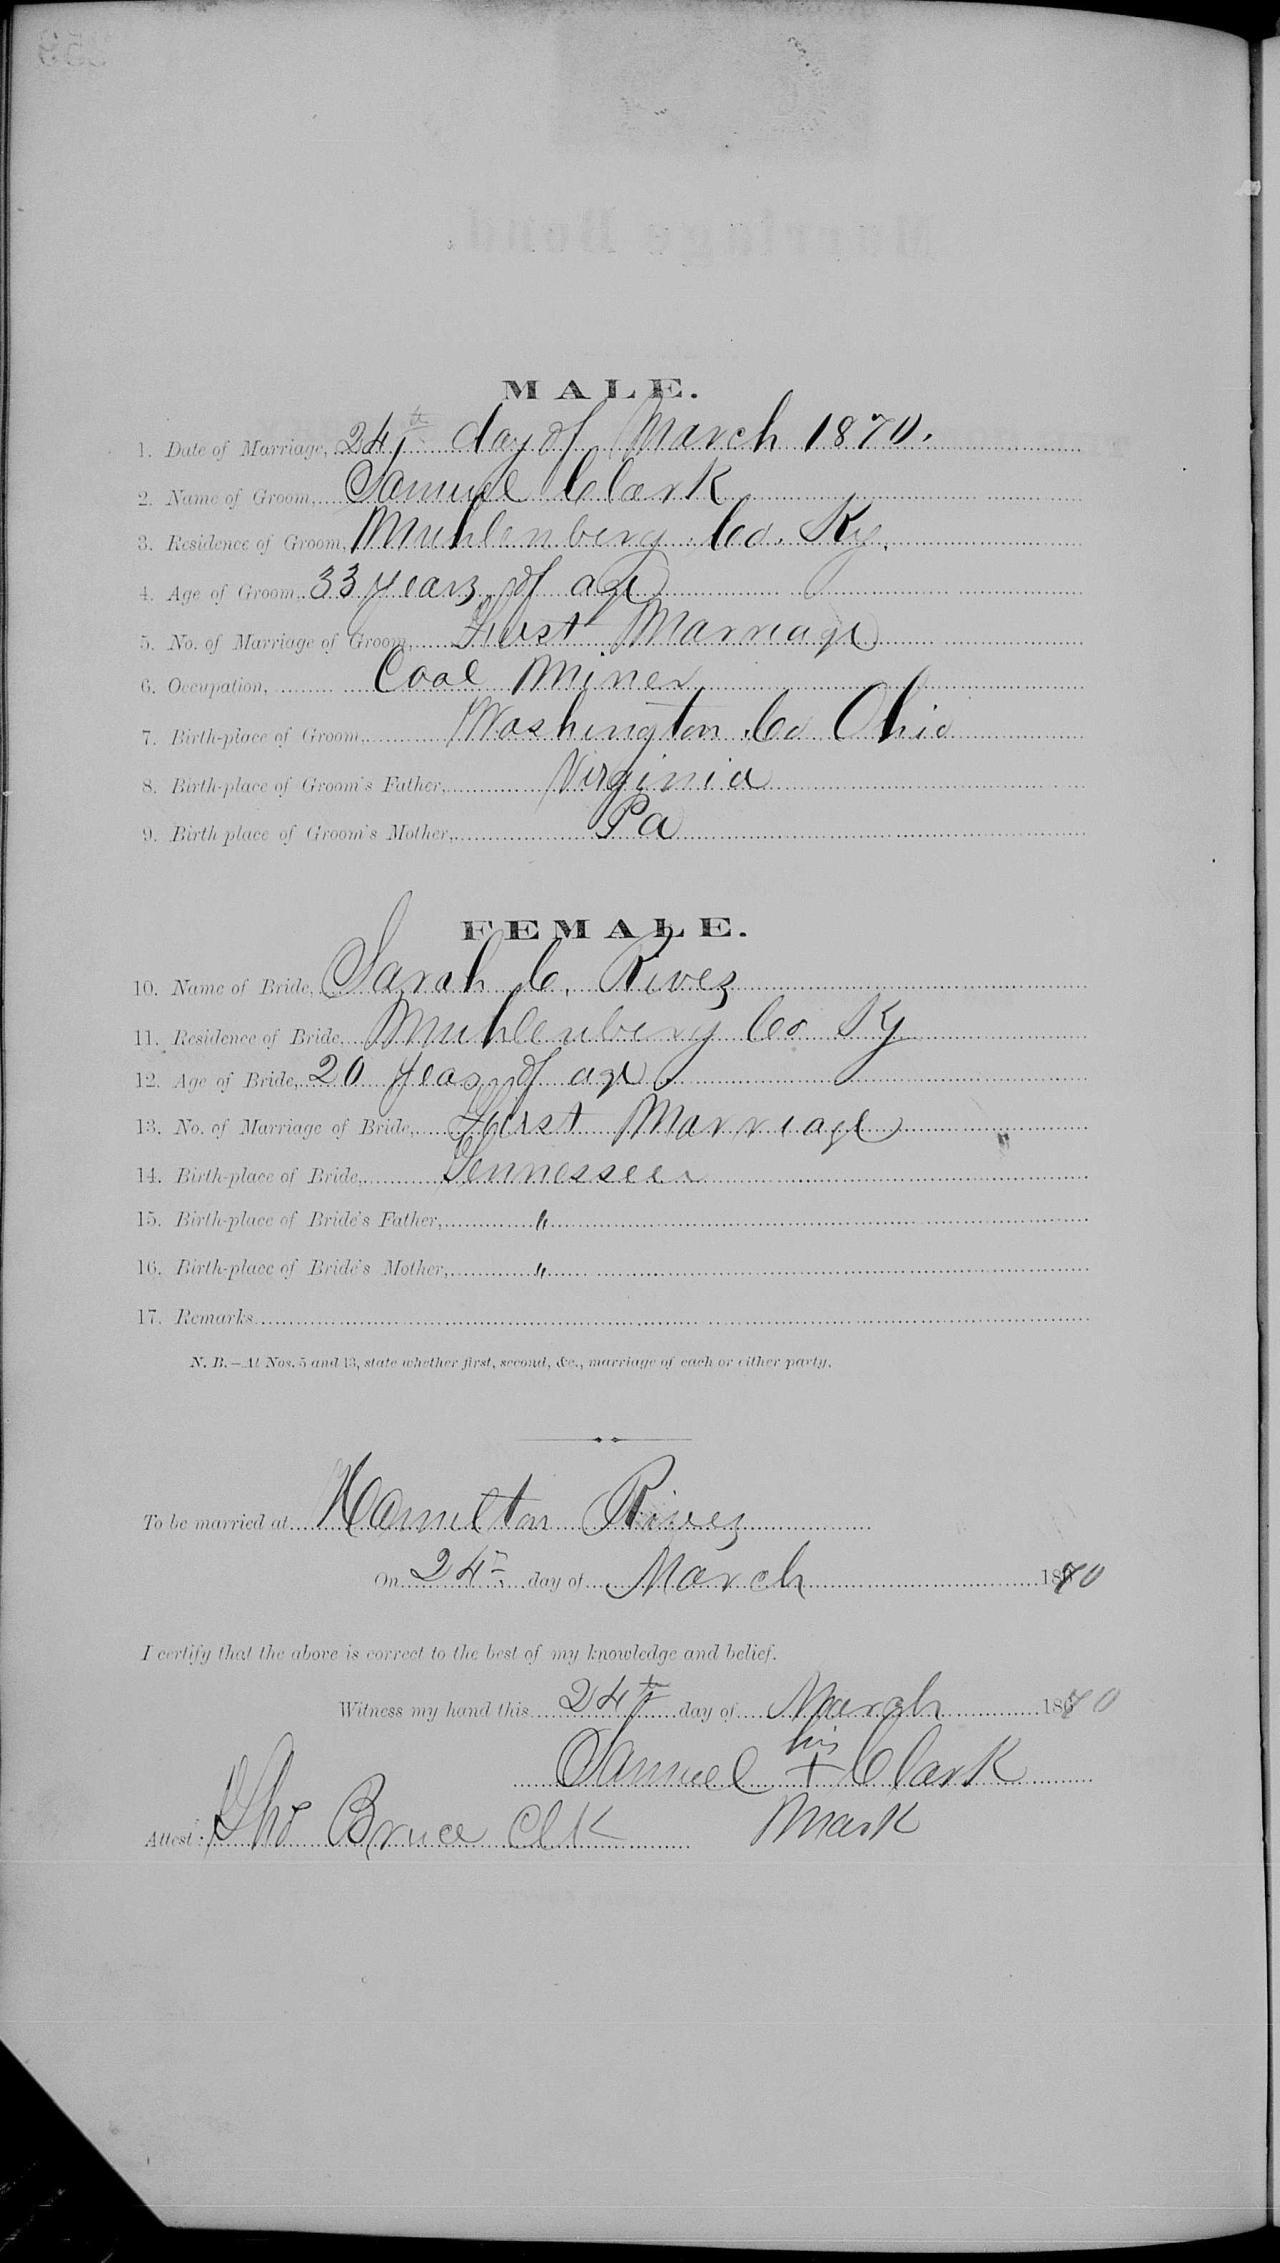 MALE.
1. Date of Marriage, 24th day of March 1870.
2. Name of Groom, Samuel Clark
3. Residence of Groom, Muhlenberg Co. Ky.
4. Age of Groom, 33 years of age
5. No. of Marriage of Groom, First Marriage
6. Occupation, Coal Miner
7. Birth-place of Groom, Washington Co Ohio
8. Birth-place of Groom's Father, Virginia
9. Birth place of Groom's Mother, Pa
FEMALE.
10. Name of Bride, Sarah C. Rives
11. Residence of Bride, Muhlenberg Co Ky
12. Age of Bride, 20 years of age
13. No. of Marriage of Bride, First Marriage
14. Birth-place of Bride, Tennessee
15. Birth-place of Bride's Father, "
16. Birth-place of Bride's Mother, "
17. Remarks
N. B.—At Nos. 5 and 13, state whether first, second, &c., marriage of each or either party.
To be married at Hamilton Rives
On 24th day of March 1870
I certify that the above is correct to the best of my knowledge and belief.
Witness my hand this 24th day of March 1870
his
Samuel + Clark
Mark
Attest: Tho Bruce Clk